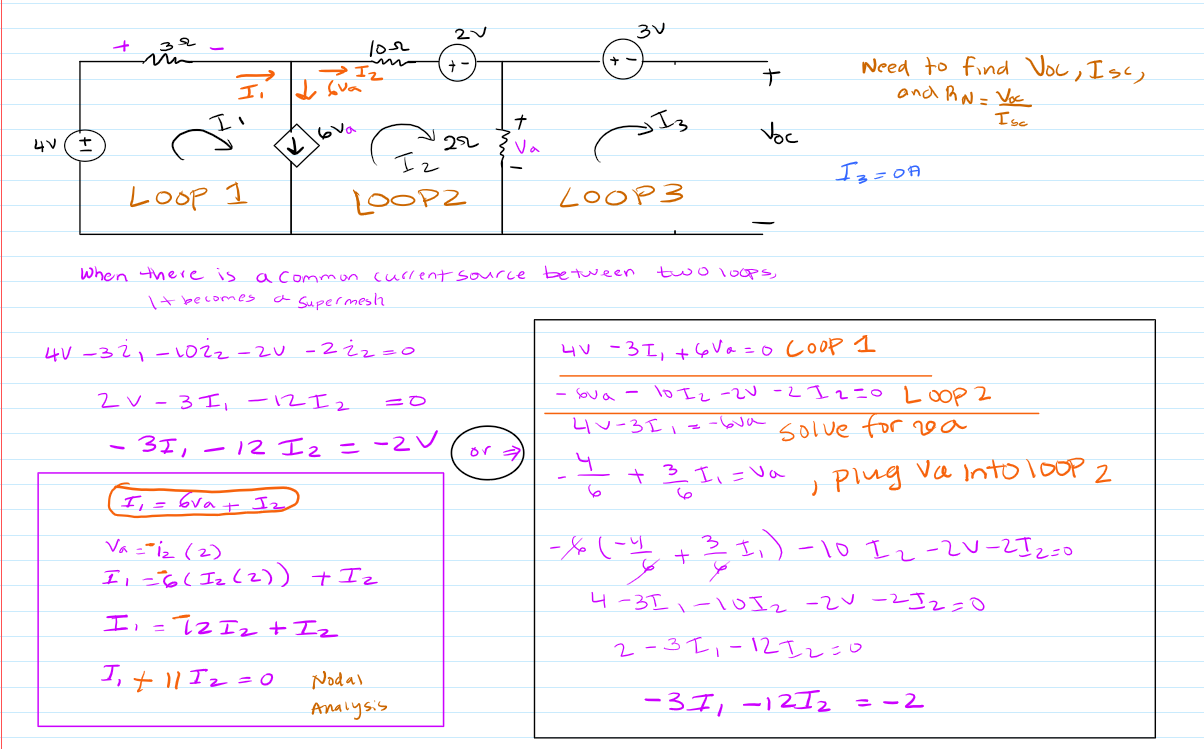 + 3Ω -
10Ω
2V
3V
+ -
+ -
I₁
I₂
6Va
4V
±
I₁
6Va
I₂
2Ω
+
Va
-
I₃
+
Voc
-
LOOP 1
LOOP2
LOOP3
Need to find Voc, Isc,
and R_N = Voc/Isc
I₃ = 0A
When there is a common current source between two loops,
It becomes a supermesh
4V - 3i₁ - 10i₂ - 2V - 2i₂ = 0
2V - 3I₁ - 12I₂ = 0
- 3I₁ - 12I₂ = -2V
or ⇒
I₁ = 6Va + I₂
Va = -i₂(2)
I₁ = -6(I₂(2)) + I₂
I₁ = -12I₂ + I₂
I₁ + 11I₂ = 0
Nodal
Analysis
4V - 3I₁ + 6Va = 0 LOOP 1
-6Va - 10I₂ - 2V - 2I₂ = 0 LOOP 2
4V - 3I₁ = -6Va solve for va
-4/6 + 3/6 I₁ = Va , plug Va into loop 2
-6(-4/6 + 3/6 I₁) - 10I₂ - 2V - 2I₂ = 0
4 - 3I₁ - 10I₂ - 2V - 2I₂ = 0
2 - 3I₁ - 12I₂ = 0
-3I₁ - 12I₂ = -2